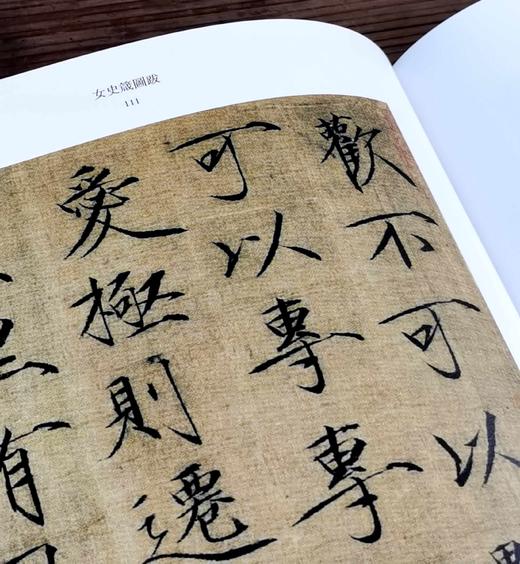 女史箴圖跋
111
歡不可以
可以專專
愛極則遷
有